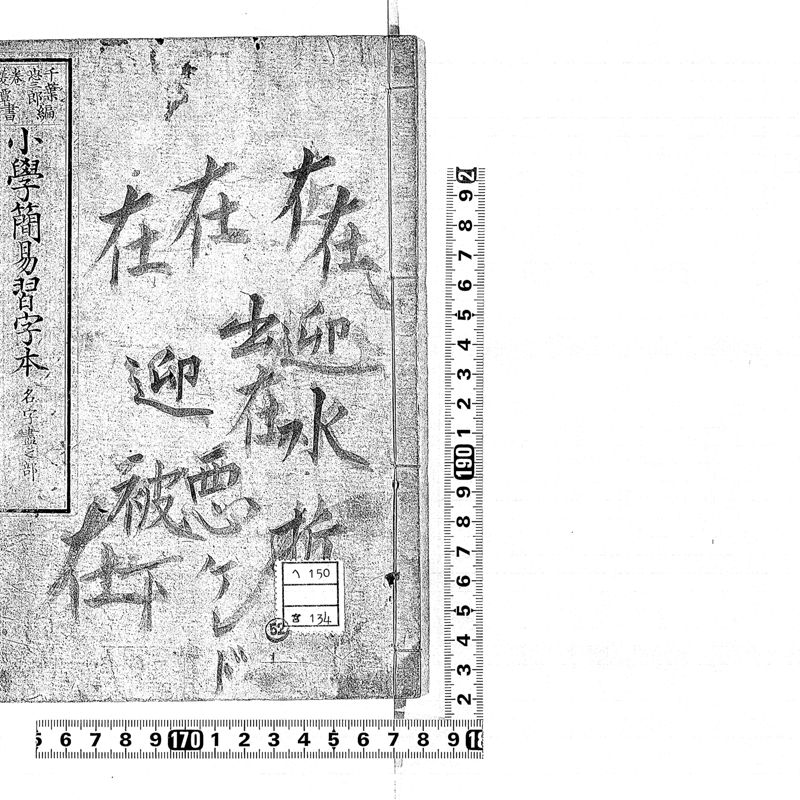 千葉編
小學簡易習字本 名字盡之部
在
在
在
在
迎
出
在
水
迎
悪
被
在
下
ケレド
ヘ 150
宮 134
52
2
9
8
7
6
5
4
3
2
1
190
9
8
7
6
5
4
3
2
6 7 8 9 170 1 2 3 4 5 6 7 8 9